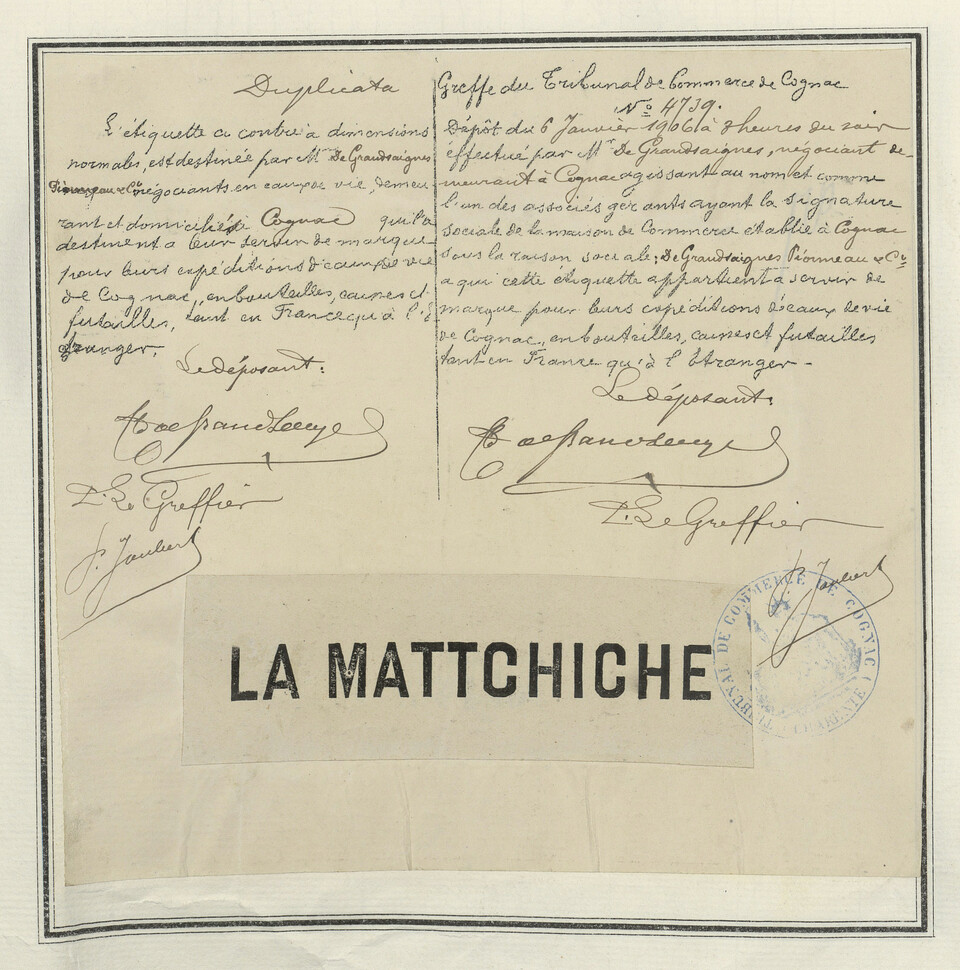 Duplicata
L'étiquette ci contre à dimensions
normales, est destinée par Mrs De Grandsaignes
Pionneau & Cie négociants en eaux de vie, demeu
rant et domiciliés à Cognac qu'ils
destinent à leur servir de marque
pour leurs expéditions d'eaux de vie
de Cognac, en bouteilles, caisses et
futailles, tant en France qu'à l'é
tranger.
Le déposant:
P. Le Greffier
P. Joubert
Greffe du Tribunal de Commerce de Cognac
No 4739.
Dépôt du 6 Janvier 1906 à 3 heures du soir
effectué par Mr De Grandsaignes, négociant de-
meurant à Cognac agissant au nom et comme
l'un des associés gérants ayant la signature
sociale de la maison de Commerce établie à Cognac
sous la raison sociale: De Grandsaignes Pionneau & Cie
a qui cette étiquette appartient a servir de
marque pour leurs expéditions d'eaux de vie
de Cognac, en bouteilles, caisses et futailles
tant en France qu'à l'Étranger -
Le déposant:
P. Le Greffier
P. Joubert
LA MATTCHICHE
TRIBUNAL DE COMMERCE DE COGNAC (CHARENTE)